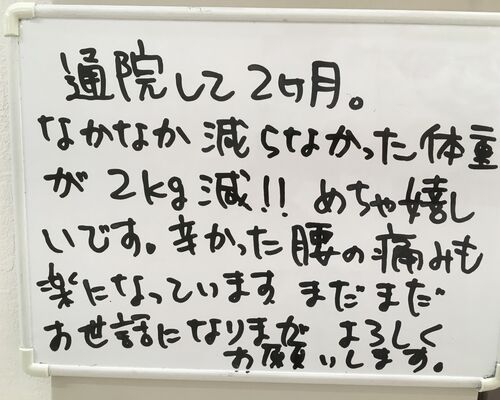 通院して2ヶ月。
なかなか減らなかった体重
が2kg減!! めちゃ嬉し
いです。辛かった腰の痛みも
楽になっています まだまだ
お世話になりまが よろしく
お願いします。